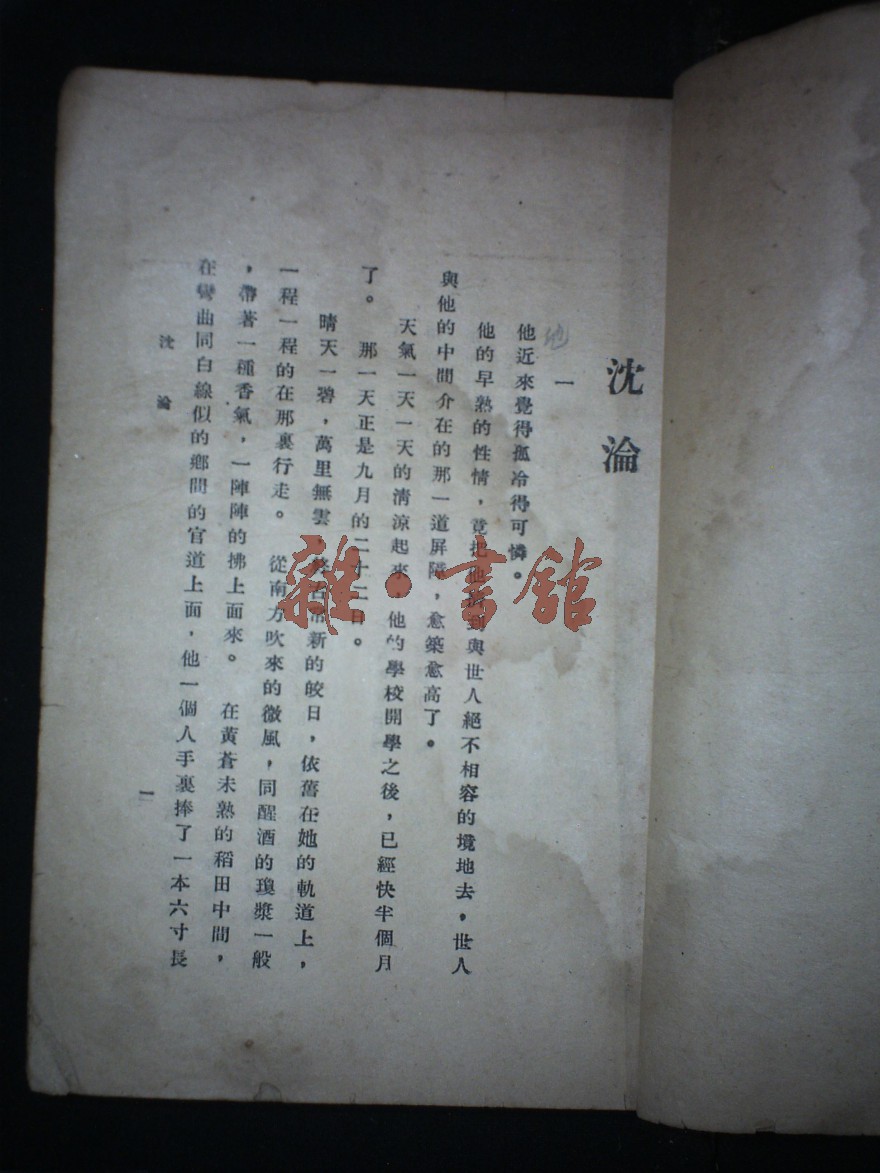 沈淪
一
他
他近來覺得孤冷得可憐。
他的早熟的性情，竟把他擠到與世人絕不相容的境地去，世人
與他的中間介在的那一道屏障，愈築愈高了。
天氣一天一天的清涼起來，他的學校開學之後，已經快半個月
了。那一天正是九月的二十二日。
晴天一碧，萬里無雲，終古常新的皎日，依舊在她的軌道上，
一程一程的在那裏行走。從南方吹來的微風，同醒酒的瓊漿一般
，帶著一種香氣，一陣陣的拂上面來。在黃蒼未熟的稻田中間，
在彎曲同白線似的鄉間的官道上面，他一個人手裏捧了一本六寸長
沈淪
一
雜·書館